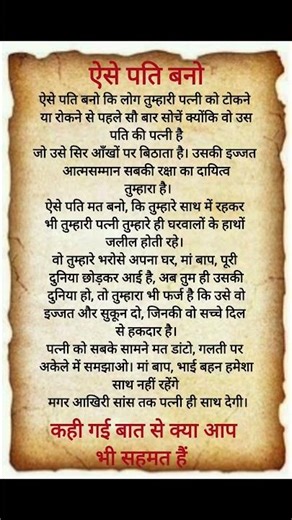 ऐसे पति बनो
ऐसे पति बनो कि लोग तुम्हारी पत्नी को टोकने
या रोकने से पहले सौ बार सोचें क्योंकि वो उस
पति की पत्नी है
जो उसे सिर आँखों पर बिठाता है। उसकी इज्जत
आत्मसम्मान सबकी रक्षा का दायित्व
तुम्हारा है।
ऐसे पति मत बनो, कि तुम्हारे साथ में रहकर
भी तुम्हारी पत्नी तुम्हारे ही घरवालों के हाथों
जलील होती रहे।
वो तुम्हारे भरोसे अपना घर, मां बाप, पूरी
दुनिया छोड़कर आई है, अब तुम ही उसकी
दुनिया हो, तो तुम्हारा भी फर्ज है कि उसे वो
इज्जत और सुकून दो, जिनकी वो सच्चे दिल
से हकदार है।
पत्नी को सबके सामने मत डांटो, गलती पर
अकेले में समझाओ। मां बाप, भाई बहन हमेशा
साथ नहीं रहेंगे
मगर आखिरी सांस तक पत्नी ही साथ देगी।
कही गई बात से क्या आप
भी सहमत हैं